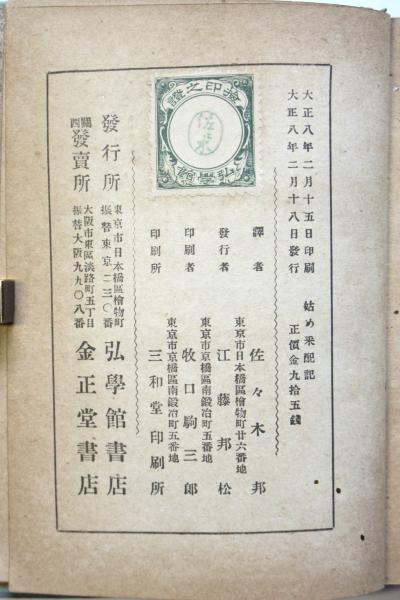 大正八年二月十五日印刷
大正八年二月十八日發行
姑め采配記
正價金九拾五錢
檢印之證
佐々木
弘學館
譯者 佐々木邦
東京市日本橋區檜物町廿六番地
發行者 江藤邦松
東京市京橋區南鍛冶町五番地
印刷者 牧口駒三郎
東京市京橋區南鍛冶町五番地
印刷所 三和堂印刷所
發行所 東京市日本橋區檜物町
振替東京二三〇番
弘學館書店
關西發賣所 大阪市東區淡路町五丁目
振替大阪九九〇八番
金正堂書店